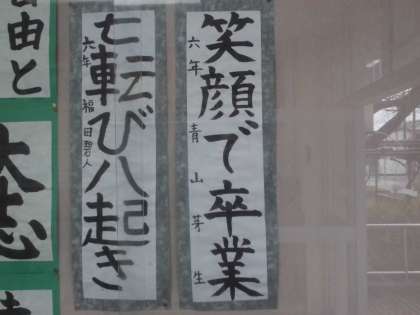 笑顔で卒業
六年 青山芽生
七転び八起き
六年 福田碧人
自由と
大志